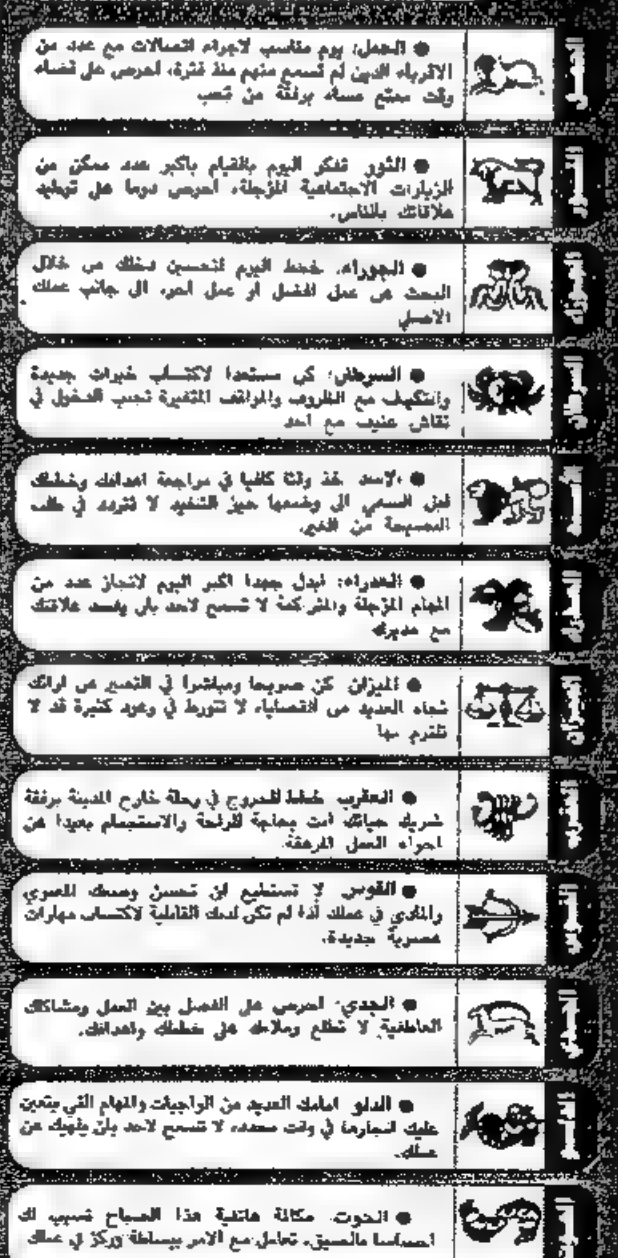 ● الحمل: يوم مناسب لاجراء اتصالات مع عدد من
الاقرباء الذين لم تسمع منهم منذ فترة، احرص على قضاء
وقت ممتع مساء برفقة من تحب
الحمل
● الثور تفكر اليوم بالقيام باكبر عدد ممكن من
الزيارات الاجتماعية المؤجلة، احرص دوما على توطيد
علاقاتك بالناس.
الثور
● الجوزاء. خطط اليوم لتحسين دخلك من خلال
البحث عن عمل افضل او عمل اخر، الى جانب عملك
الاصلي
الجوزاء
● السرطان: كن مستعدا لاكتساب خبرات جديدة
والتكيف مع الظروف والمواقف المتغيرة تجنب الدخول في
نقاش عنيف مع احد
السرطان
● الاسد خذ وقتا كافيا في مراجعة اهدافك وخططك
قبل السعي الى وضعها حيز التنفيذ لا تتردد في طلب
النصيحة من الغير
الاسد
● العذراء: ابذل جهدا اكبر اليوم لانجاز عدد من
المهام المؤجلة والمتراكمة لا تسمح لاحد بان يفسد علاقتك
مع مديرك
العذراء
● الميزان كن صريحا ومباشرا في التعبير عن ارائك
تجاه العديد من القضايا، لا تتورط في وعود كثيرة قد لا
تلتزم بها
الميزان
● العقرب خطط للخروج في رحلة خارج المدينة برفقة
شريك حياتك انت بحاجة للراحة والاستجمام بعيدا عن
اجواء العمل المرهقة
العقرب
● القوس لا تستطيع ان تحسن وضعك المعنوي
والمادي في عملك اذا لم تكن لديك القابلية لاكتساب مهارات
عصرية جديدة.
القوس
● الجدي: احرص على الفصل بين العمل ومشاكلك
العاطفية لا تطلع زملاءك على خططك واهدافك.
الجدي
● الدلو امامك العديد من الواجبات والمهام التي يتعين
عليك انجازها في وقت محدد، لا تسمح لاحد بان يلهيك عن
عملك.
الدلو
● الحوت. مكالمة هاتفية هذا الصباح تسبب لك
احساسا بالضيق، تعامل مع الامر ببساطة وركز في عملك
الحوت